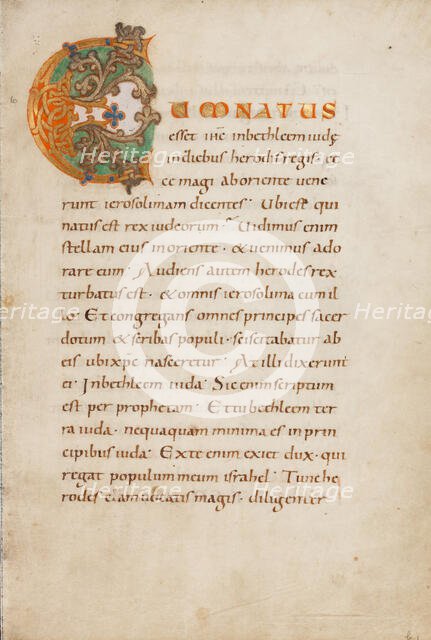 CUM NATUS
esset ihc inbethleem iudę
indiebus herodis regis· ec
ce magi aboriente uene
runt ierosolimam dicentes· Ubi est qui
natus est rex iudeorum· Uidimus enim
stellam eius inoriente· & uenimus ado
rare eum· Audiens autem herodes rex
turbatus est· & omnis ierosolima cum il
lo· Et congregans omnes principes sacer
dotum & scribas populi· sciscitabatur ab
eis ubi xpc nasceretur· At illi dixerunt
ei· Inbethleem iuda· Sic enim scriptum
est per prophetam· Et tu bethleem ter
ra iuda· nequaquam minima es in prin
cipibus iuda· Ex te enim exiet dux· qui
regat populum meum israhel· Tunc he
rodes clam uocatis magis· diligenter
Heritage Heritage
Heritage Heritage Heritage
Heritage Heritage